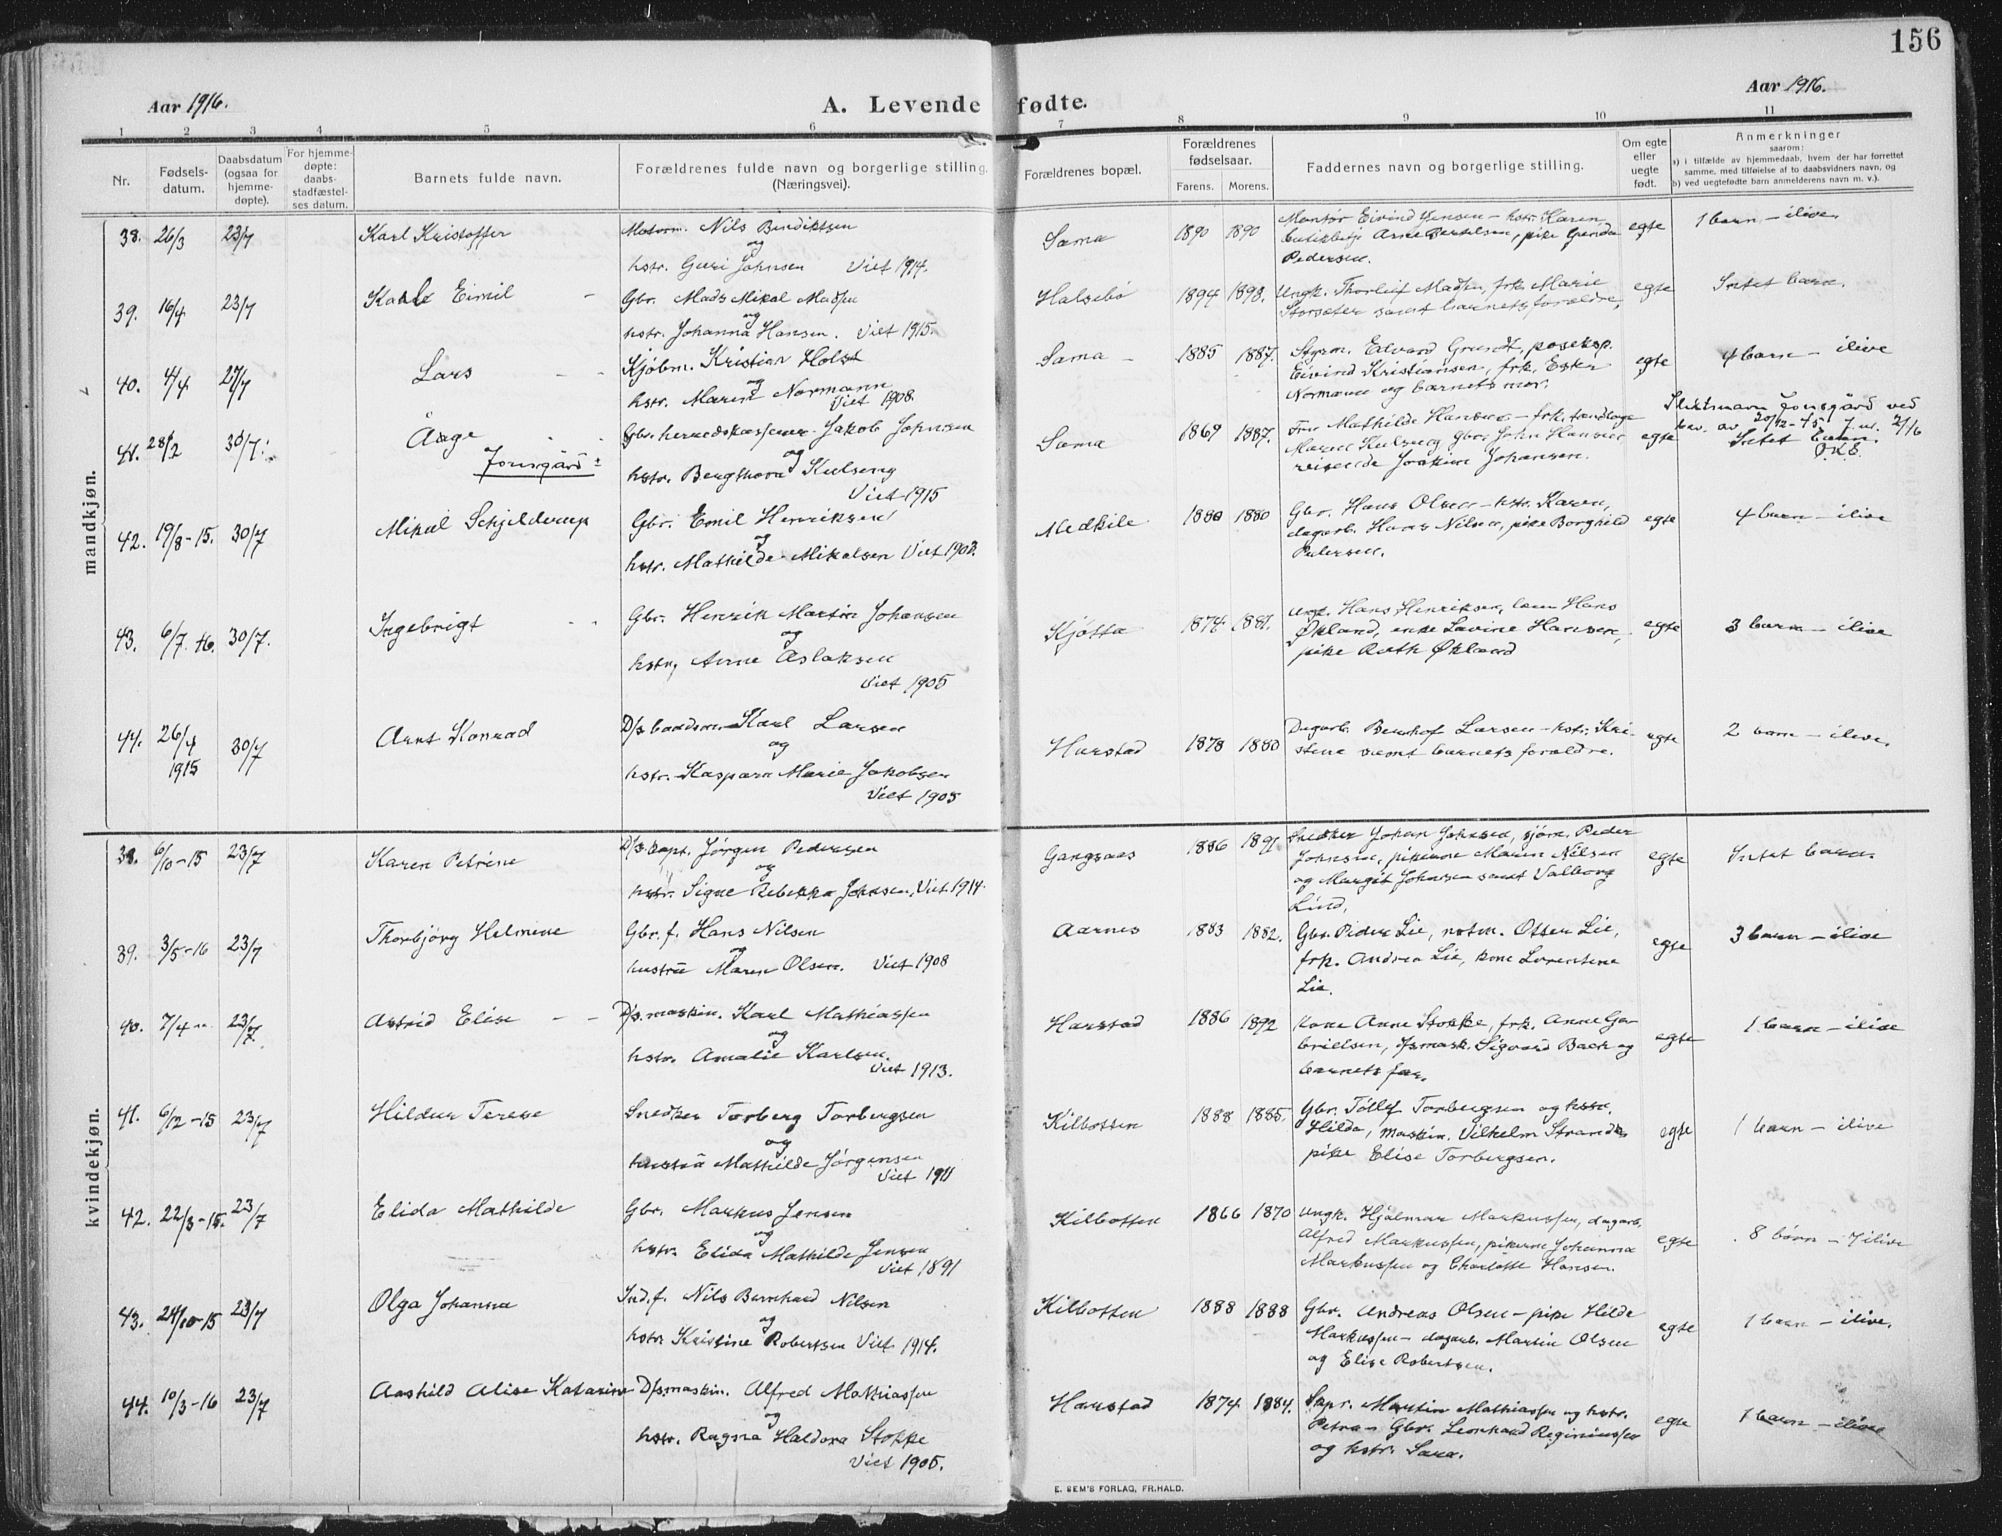 156
Aar 1916.
A. Levende fødte.
Aar 1916.
1 2 3 4 5 6 7 8 9 10 11
Nr.
Fødsels-
datum.
Daabsdatum
(ogsaa for
hjemme-
døpte).
For hjemme-
døpte:
daabs-
stadfæstel-
ses datum.
Barnets fulde navn.
Forældrenes fulde navn og borgerlige stilling
(Næringsvei).
Forældrenes bopæl.
Forældrenes
fødselsaar.
Farens. Morens.
Faddernes navn og borgerlige stilling.
Om egte
eller
uegte
født.
Anmerkninger
saasom:
a) i tilfælde av hjemmedaab, hvem der har forrettet
samme, med tilføielse af to daabsvidners navn, og
b) ved uegtefødte barn anmelderens navn m. v.).
mandkjøn.
38. 26/3 23/7 Karl Kristoffer Nils Bendiktsen
og
hstr. Guri Johnsen Viet 1914.
Sama 1890 1890 Montør Eivind Jensen - hstr. Karen
Arne Bertelsen, pike Gerda
Pedersen.
egte 1 barn - ilive.
39. 16/4 23/7 Kaale Eimil Gbr. Mads Mikal Madsen
og
hstr. Johanna Hansen. Viet 1915
Halsebø 1894 1898. Ungk. Thorleif Madsen, frk. Marie
Storsæter samt barnets forældre,
egte Intet barn.
40. 4/4 27/7 Lars Kjøbm. Kristian Holst
og
hstr. Maren Normann
Viet 1908
Sama 1885 1887. Styrm. Edvard Grundt, poseksp.
Eivind Kristiansen, frk. Ester
Normann og barnets mor.
egte 4 barn - ilive
41. 28/2 30/7. Åage
Jonsgård
Gbr. herredskasserer Jakob Johnsen
og
hstr. Bergthora Kulseng
Viet 1915
Sama 1869 1887. Fru Mathilde Hansen - frk. tandlæge
Maren Kulseng Gbr. John Hansen
reisende Joakim Johansen.
egte Slektsnavn Jonsgård ved
bev. av 20/12-45. J. nr. 2/16
Intet barn.
O.K.E.
42. 19/8-15. 30/7 Mikal Schjelderup Gbr. Emil Henriksen
og
hstr. Mathilde Mikalsen Viet 1902.
Medkile 1880 1880 Gbr. Hans Olsen - hstr. Karen,
dagarb. Hans Nilsen, pike Borghild
Pedersen.
egte 4 barn - ilive
43. 6/7. 16. 30/7. Ingebrigt Gbr. Henrik Martin Johansen
og
hstr. Anne Aslaksen
Viet 1905
Kjøtta 1874 1881. Ungk. Hans Henriksen, Hans
Økland, enke Lavine Hansen,
pike Ruth Økland
egte 3 barn - ilive
44. 26/4
1915 30/7 Arnt Konrad D/s. baadsm. Karl Larsen
og
hstr. Kaspara Marie Jakobsen
Viet 1905
Harstad 1878 1880 Dagarb. Bernhof Larsen - hstr. Kri-
stene samt barnets forældre.
egte 2 barn - ilive.
kvindekjøn.
38. 6/10-15 23/7 Karen Petrine D/s. kapt. Jørgen Pedersen
og
hstr. Signe Rebekka Johnsen, Viet 1914.
Gangsaas 1886 1891 Snedker Johan Johnsen, sjøm. Peder
Johnsen, pikerne Maren Nilsen
og Margit Johnsen samt Valborg
Lind,
egte Intet barn.
39. 3/5-16 23/7 Thorbjørg Helmine Gbr. f. Hans Nilsen
og
hustru Maren Olsen. Viet 1908
Aarnes 1883 1882. Gbr. Peder Lie, notm. Otter Lie,
frk. Andrea Lie, kone Lorentine
Lie.
egte 3 barn - ilive
40. 7/4 " 23/7. Astrid Elise D/s. maskin. Karl Mathiassen
og
hstr. Amalie Karlsen.
Viet 1913.
Harstad 1886 1892 Kone Anne Stokke, frk. Anne Ga-
brielsen, d/s mask. Sigvard Back og
barnets far.
egte 1 barn - ilive
41. 6/12-15 23/7 Hildur Terese Snedker Torberg Torbergsen
og
hustru Mathilde Jørgensen
Viet 1911
Kilbotten 1888 1885. Gbr. Tollef Torbergsen og hstr.
Hilda, maskin. Vilhelm Strand
pike Elise Torbergsen.
egte 1 barn - ilive
42. 22/3-15. 23/7 Elida Mathilde Gbr. Markus Jensen
og
hstr. Elida Mathilde Jensen
Viet 1891
Kilbotten 1866 1870 Ungk. Hjalmar Markussen, dagarb.
Alfred Markussen, pikerne Johanna
Markussen og Charlotte Hansen.
egte 8 børn - 7 ilive
43. 24/10-15 23/7 Olga Johanna Ind. f. Nils Bernhard Nilsen
og
hstr. Kristine Robertsen Viet 1914.
Kilbotten 1888 1888 Gbr. Andreas Olsen - pike Hilda
Markussen - dagarb. Martin Olsen
og Elise Robertsen.
egte 1 barn - ilive.
44. 10/3-16 23/7 Aashild Alise Katarine D/s maskin. Alfred Mathiassen
og
hstr. Ragna Haldora Stokke
Viet 1905.
Harstad 1874 1884. Skpr. Martin Mathiassen og hstr.
Petra - Gbr. Leonhard Reginiussen
og hstr. Sara.
egte 1 barn - ilive
E. SEM'S FORLAG, FR.HALD.